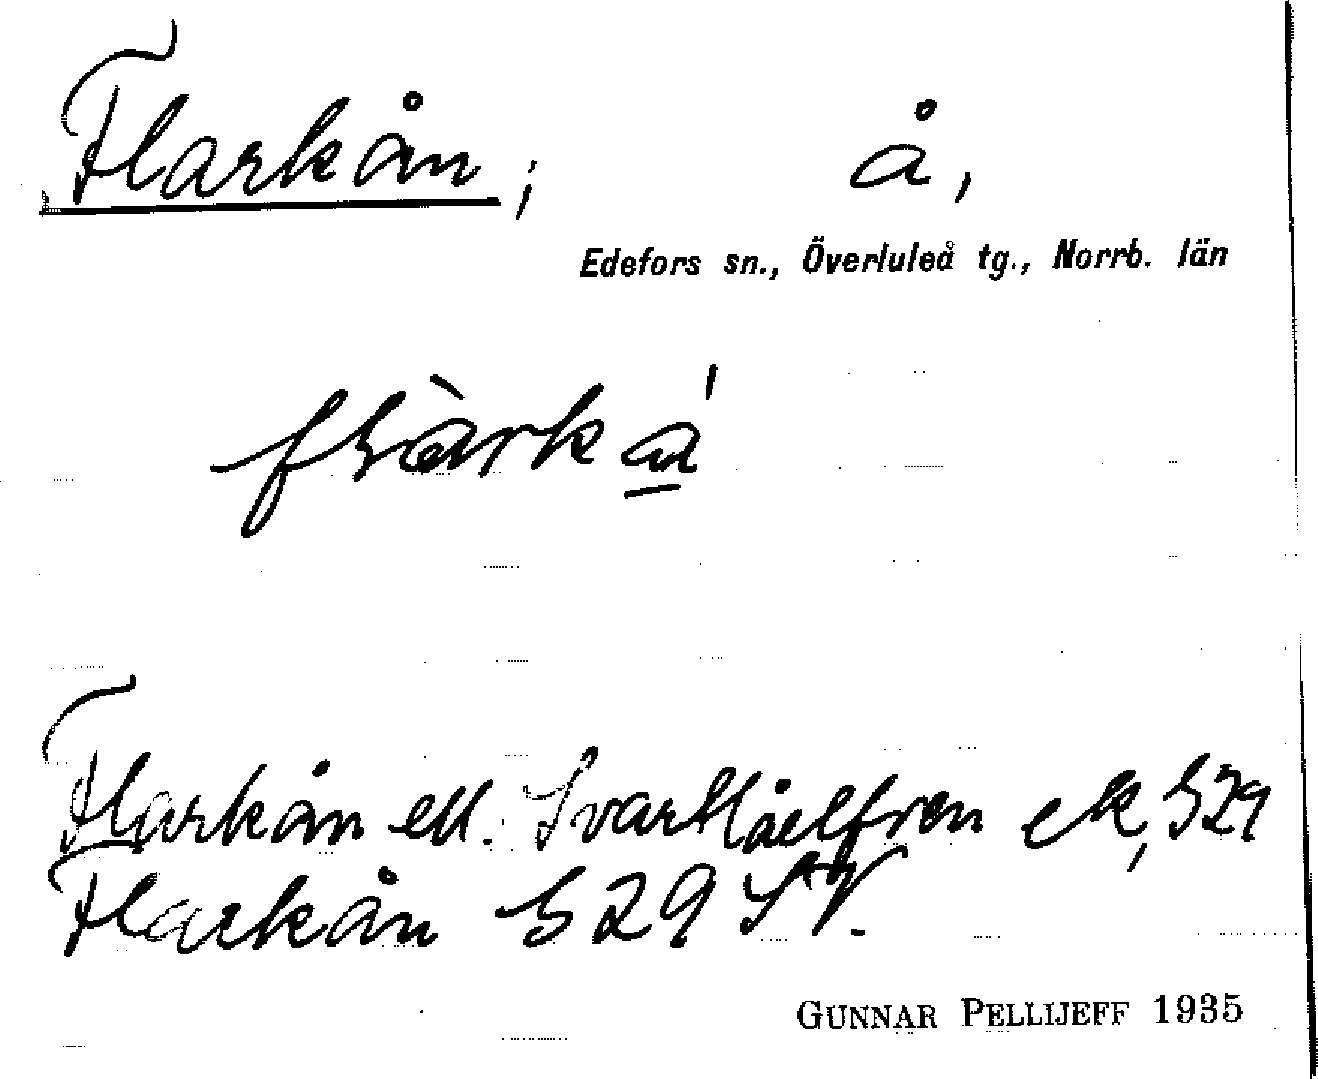 Flarkån; å,
Edefors sn., Överluleå tg., Norrb. län
Flarkån ell. Svartåelfven ek, 529
Flarkån 529 SV.
GUNNAR PELLIJEFF 1935